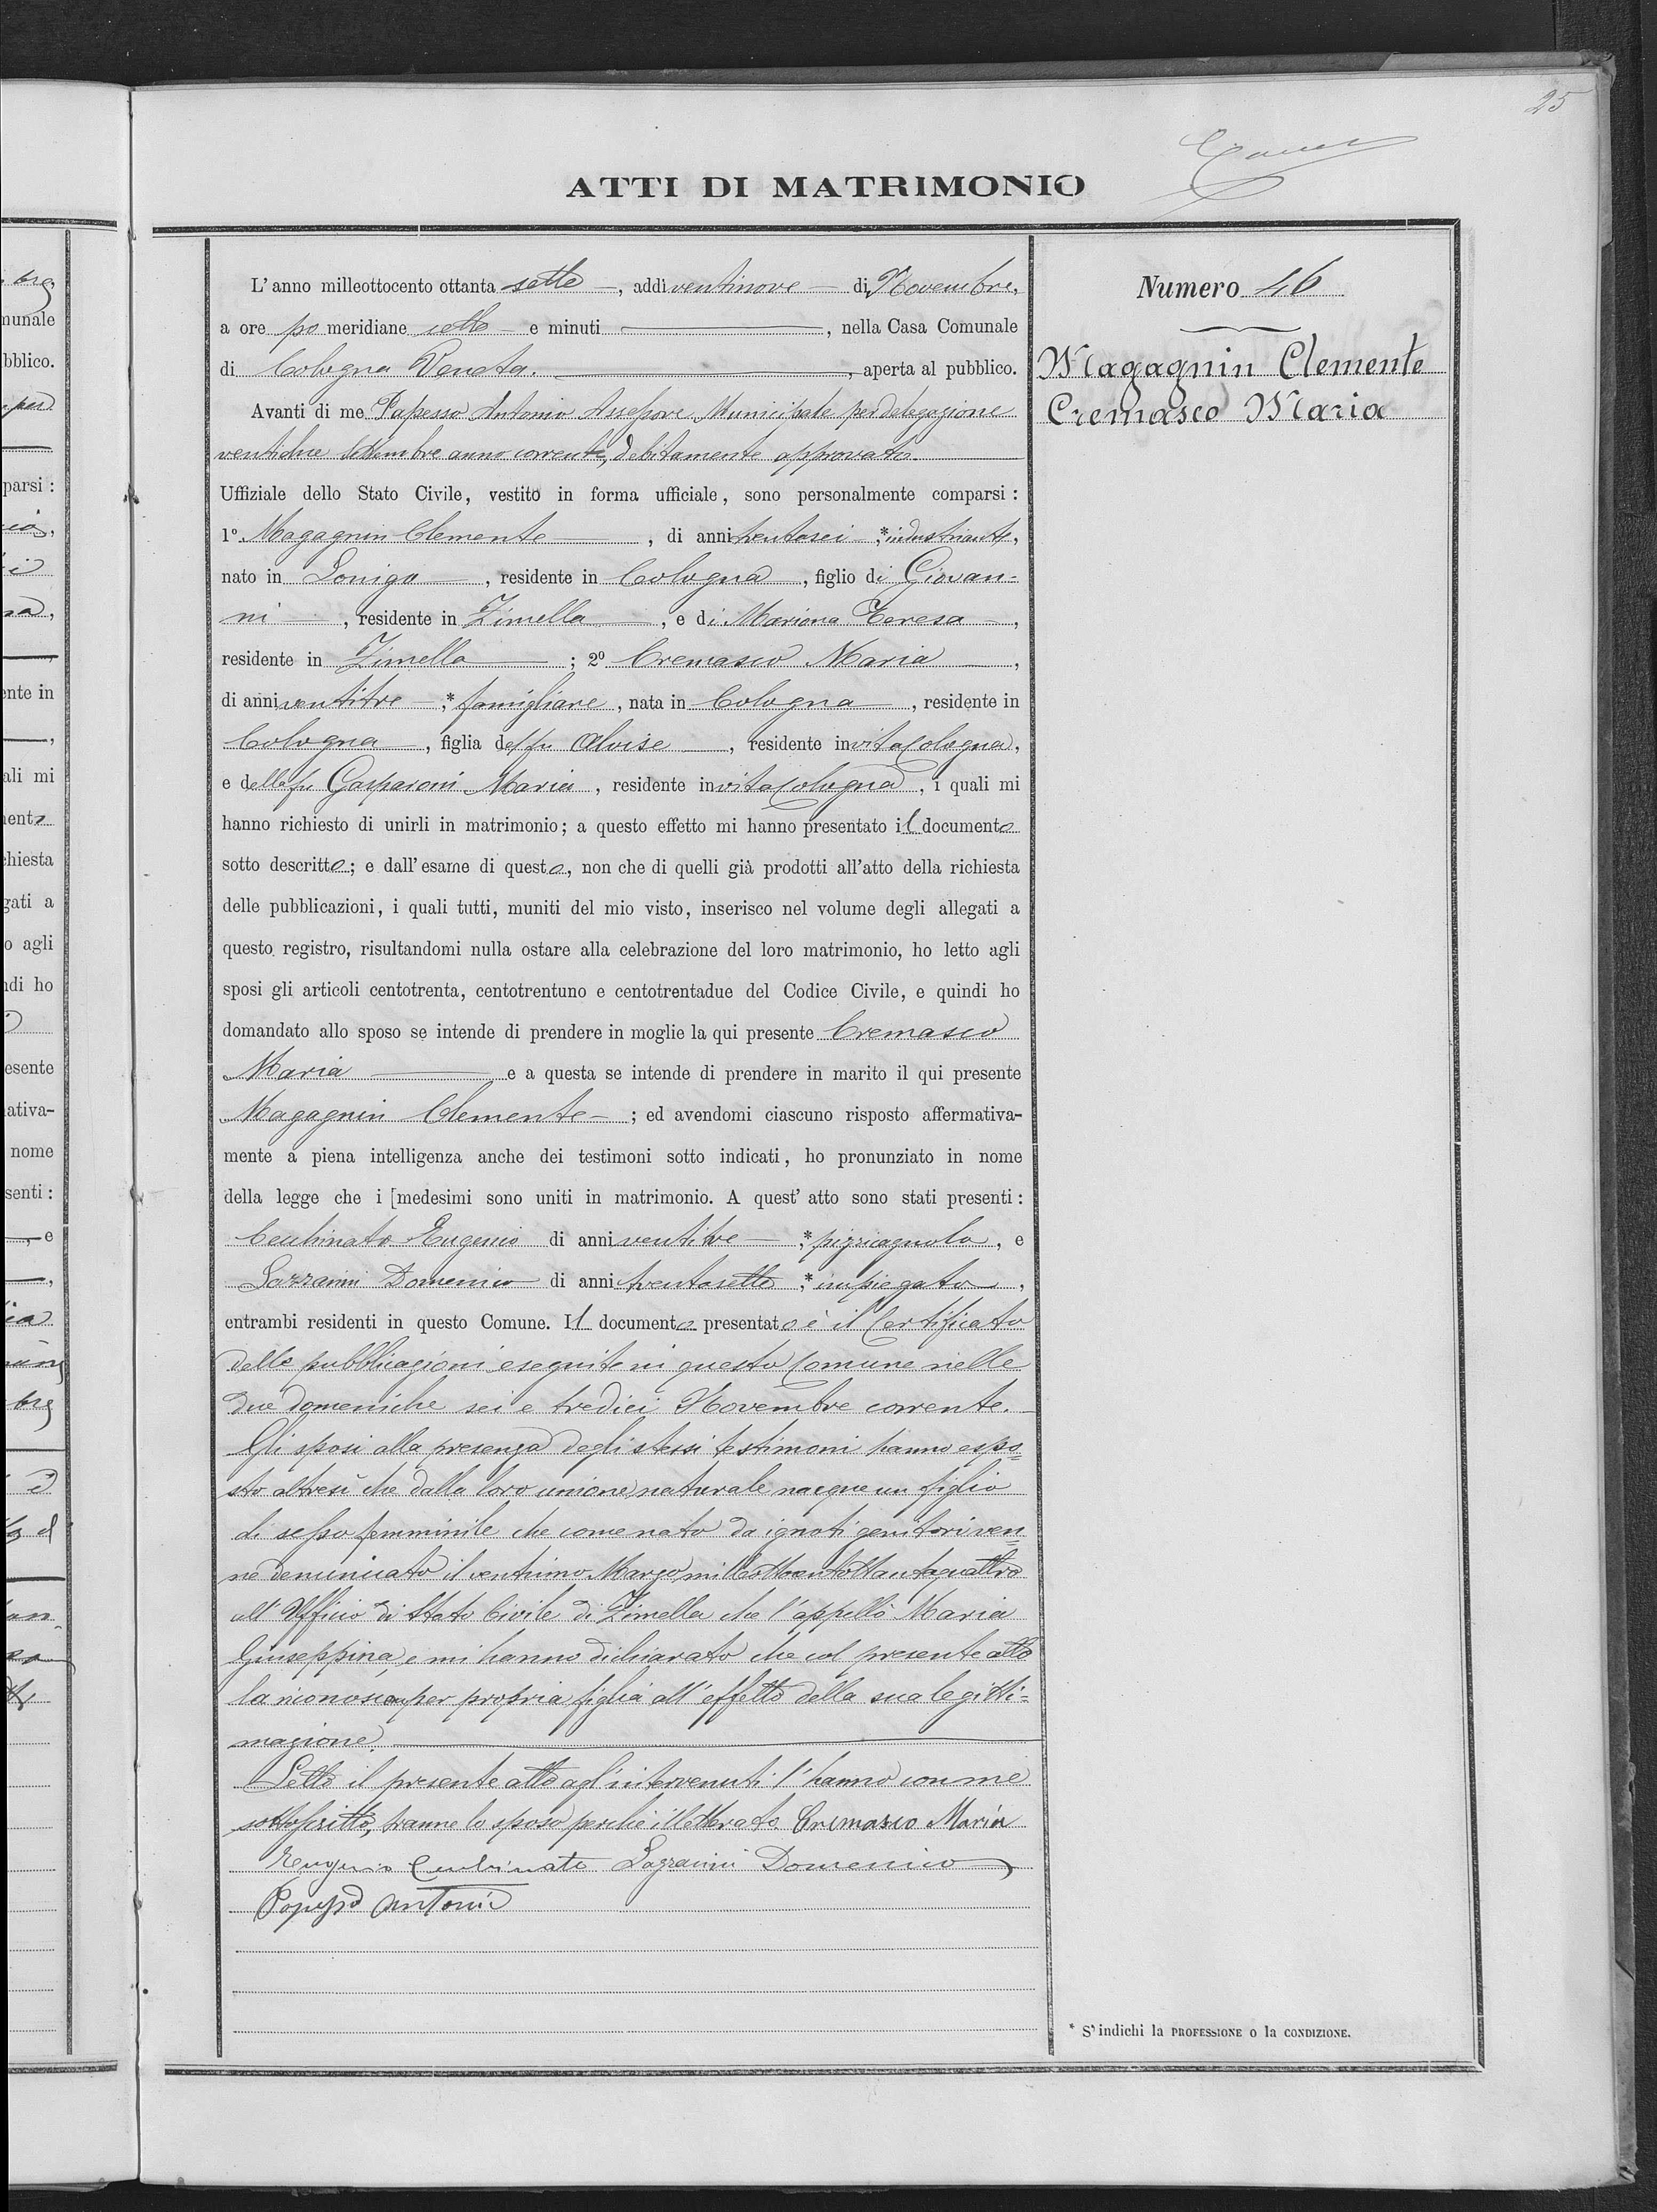 25
ATTI DI MATRIMONIO
Numero 46
Magagnin Clemente
Cremasco Maria
L'anno milleottocento ottanta sette —, addì ventinove — di Novembre,
a ore po meridiane sette — e minuti —, nella Casa Comunale
di Cologna Veneta. —, aperta al pubblico.
Avanti di me Papesso Antonio Assessore Municipale per delegazione
ventidue Settembre anno corrente, debitamente approvata —
Uffiziale dello Stato Civile, vestito in forma ufficiale, sono personalmente comparsi:
1º Magagnin Clemente —, di anni trentasei —,* industriante,
nato in Lonigo —, residente in Cologna, figlio di Giovan=
ni —, residente in Zimella —, e di Mariona Teresa —,
residente in Zimella —; 2º Cremasco Maria —,
di anni ventitre —,* famigliare, nata in Cologna —, residente in
Cologna —, figlia del fu Aloise —, residente in vita Cologna,
e della fu Gasparoni Maria, residente in vita Cologna, i quali mi
hanno richiesto di unirli in matrimonio; a questo effetto mi hanno presentato il documento
sotto descritto; e dall'esame di questo, non che di quelli già prodotti all'atto della richiesta
delle pubblicazioni, i quali tutti, muniti del mio visto, inserisco nel volume degli allegati a
questo registro, risultandomi nulla ostare alla celebrazione del loro matrimonio, ho letto agli
sposi gli articoli centotrenta, centotrentuno e centotrentadue del Codice Civile, e quindi ho
domandato allo sposo se intende di prendere in moglie la qui presente Cremasco
Maria — e a questa se intende di prendere in marito il qui presente
Magagnin Clemente —; ed avendomi ciascuno risposto affermativa-
mente a piena intelligenza anche dei testimoni sotto indicati, ho pronunziato in nome
della legge che i [medesimi sono uniti in matrimonio. A quest' atto sono stati presenti:
Cecchinato Eugenio di anni ventitre —,* pizzicagnolo, e
Lazzarini Domenico di anni trentasette,* impiegato,
entrambi residenti in questo Comune. Il documento presentato è il Certificato
delle pubblicazioni eseguite in questo Comune nelle
due domeniche sei e tredici Novembre corrente. —
Gli sposi alla presenza degli stessi testimoni hanno espo=
sto altresì che dalla loro unione naturale nacque un figlio
di sesso femminile che come nato da ignoti genitori ven=
ne denunciato il ventuno Marzo milleottocentottantaquattro
all'Ufficio di Stato Civile di Zimella che l'appellò Maria
Giuseppina, e mi hanno dichiarato che col presente atto
la riconoscon per propria figlia all'effetto della sua legitti=
mazione. —
Letto il presente atto agl'intervenuti l'hanno con me
sottoscritto, tranne lo sposo perchè illetterato Cremasco Maria
Eugenio Cecchinato Lazzarini Domenico
Papesso Antonio
* S'indichi la PROFESSIONE o la CONDIZIONE.